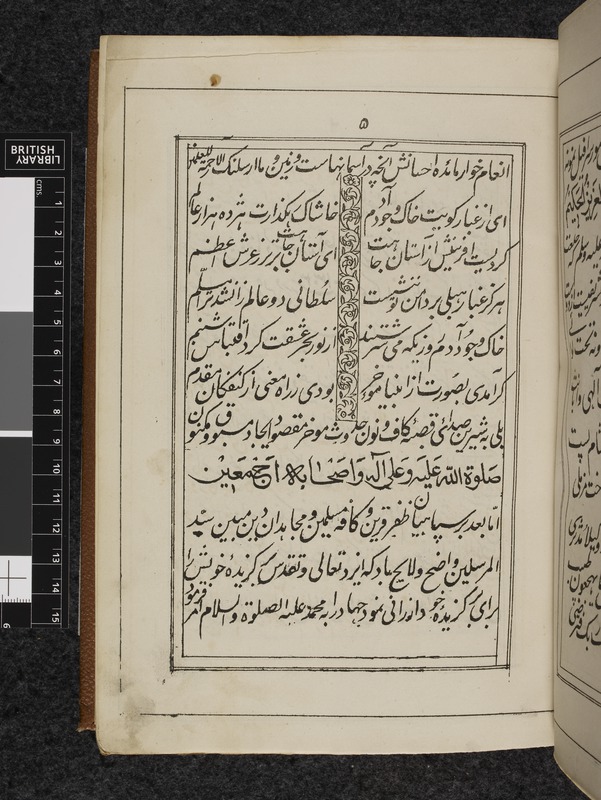 ۵
انعام خوار مائده احسانش آنچه در آسمانهاست و زمین و ما ارسلنک الا رحمة للعلمین
ای از غبار کویت خاک وجود آدم
خاشاک رهگذارت هژده هزار عالم
کرسیت آفرینش از آستان جاهت
ای آستان جاهت برتر ز عرش اعظم
هرگز غبار هیلی بر دامن تو ننشست
سلطانی دو عالم زانشد ترا مسلم
خاک وجود آدم روزیکه می سرشتند
از نور بحر عشقت کرد اقتباس شبنم
گر آمدی بصورت از انبیا مؤخر
بودی ز راه معنی از کنفکان مقدم
بلی به شیرین صدائی قصه کاف و نون حدوث موخر مقصود ایجاد مسبوق مکنون
صلوة الله علیه و علی آله و اصحابه اجمعین
اما بعد بر سپاهیان ظفر قرین و کافه مسلمین و مجاهدان دین مبین سید
المرسلین واضح و لایح باد که ایزد تعالی و تقدس گزیده خویش را
برای برگزیده خود ارزانی نمود جهاد را به محمد علیه الصلوة والسلام امر فرمود
BRITISH
LIBRARY
cms.
1
2
3
4
5
6
7
8
9
10
11
12
13
14
15
6